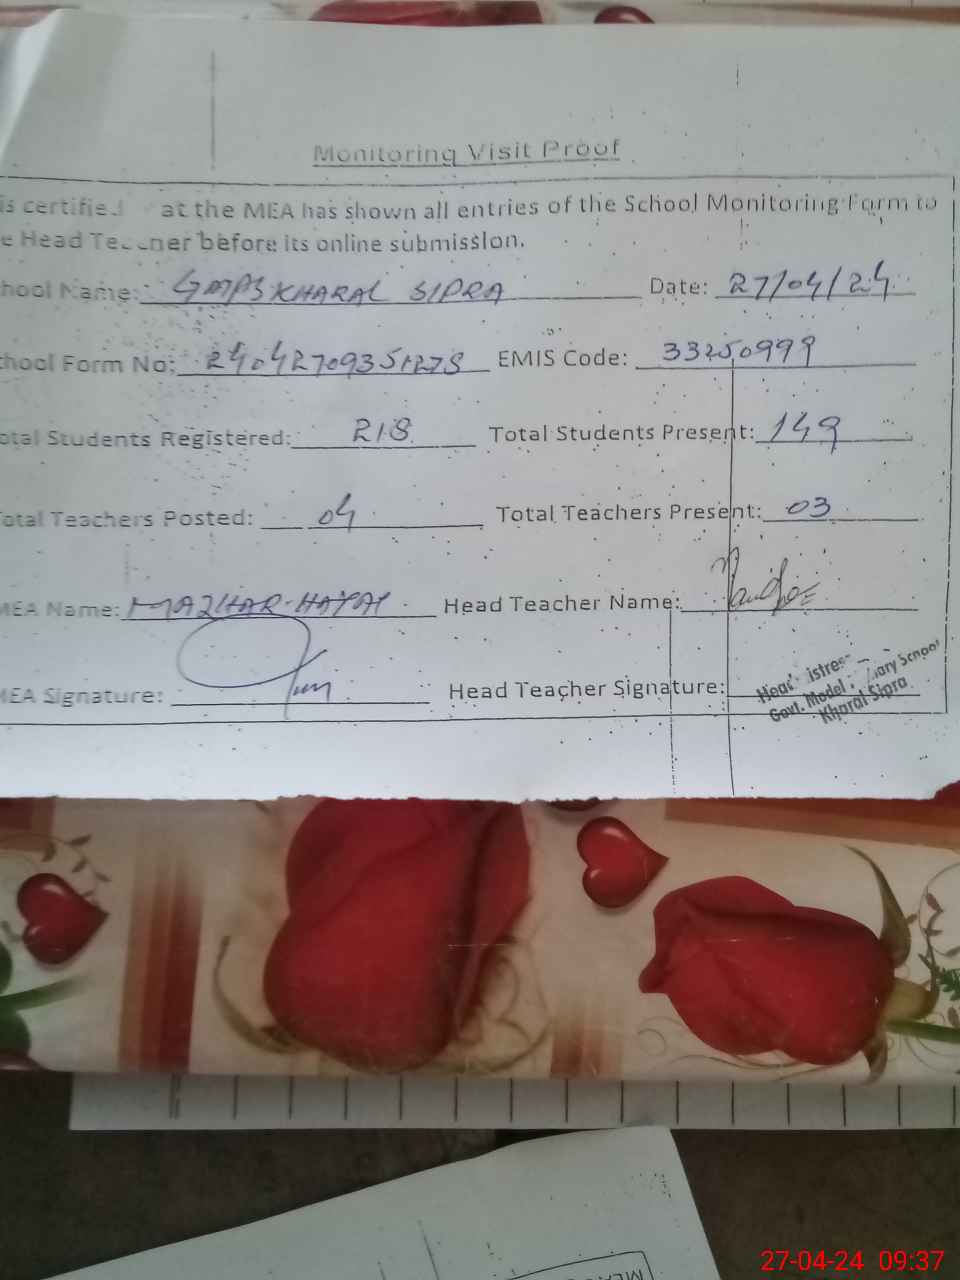 Monitoring Visit Proof
is certified at the MEA has shown all entries of the School Monitoring Form to
e Head Teacher before its online submission.
hool Name: GMPS KHARAL SIPRA Date: 27/04/24
hool Form No: 24042709351278 EMIS Code: 33250999
otal Students Registered: 218 Total Students Present: 149
otal Teachers Posted: 04 Total Teachers Present: 03
MEA Name: MAZHAR-HAYAT Head Teacher Name:
MEA Signature: Head Teacher Signature:
Govt. Model School
Kharal Sipra
27-04-24 09:37